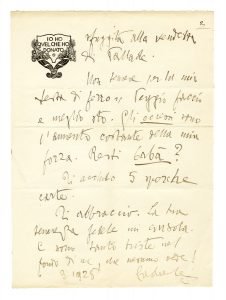 IO HO
QVEL CHE HO
DONATO
2.
sfuggita alla vendetta
di Pallade.
Non teme per la mia
testa di ferro. Peggio faccio
e meglio sto. Gli occhi sono
l'amento costante della mia
forza. Resti
Ti accludo 5 sporche
carte.
Ti abbraccio. La tua
fedele mi consola.
E sono tanto triste nel
fondo di me, che nessuno vede!
1925
Gabriele